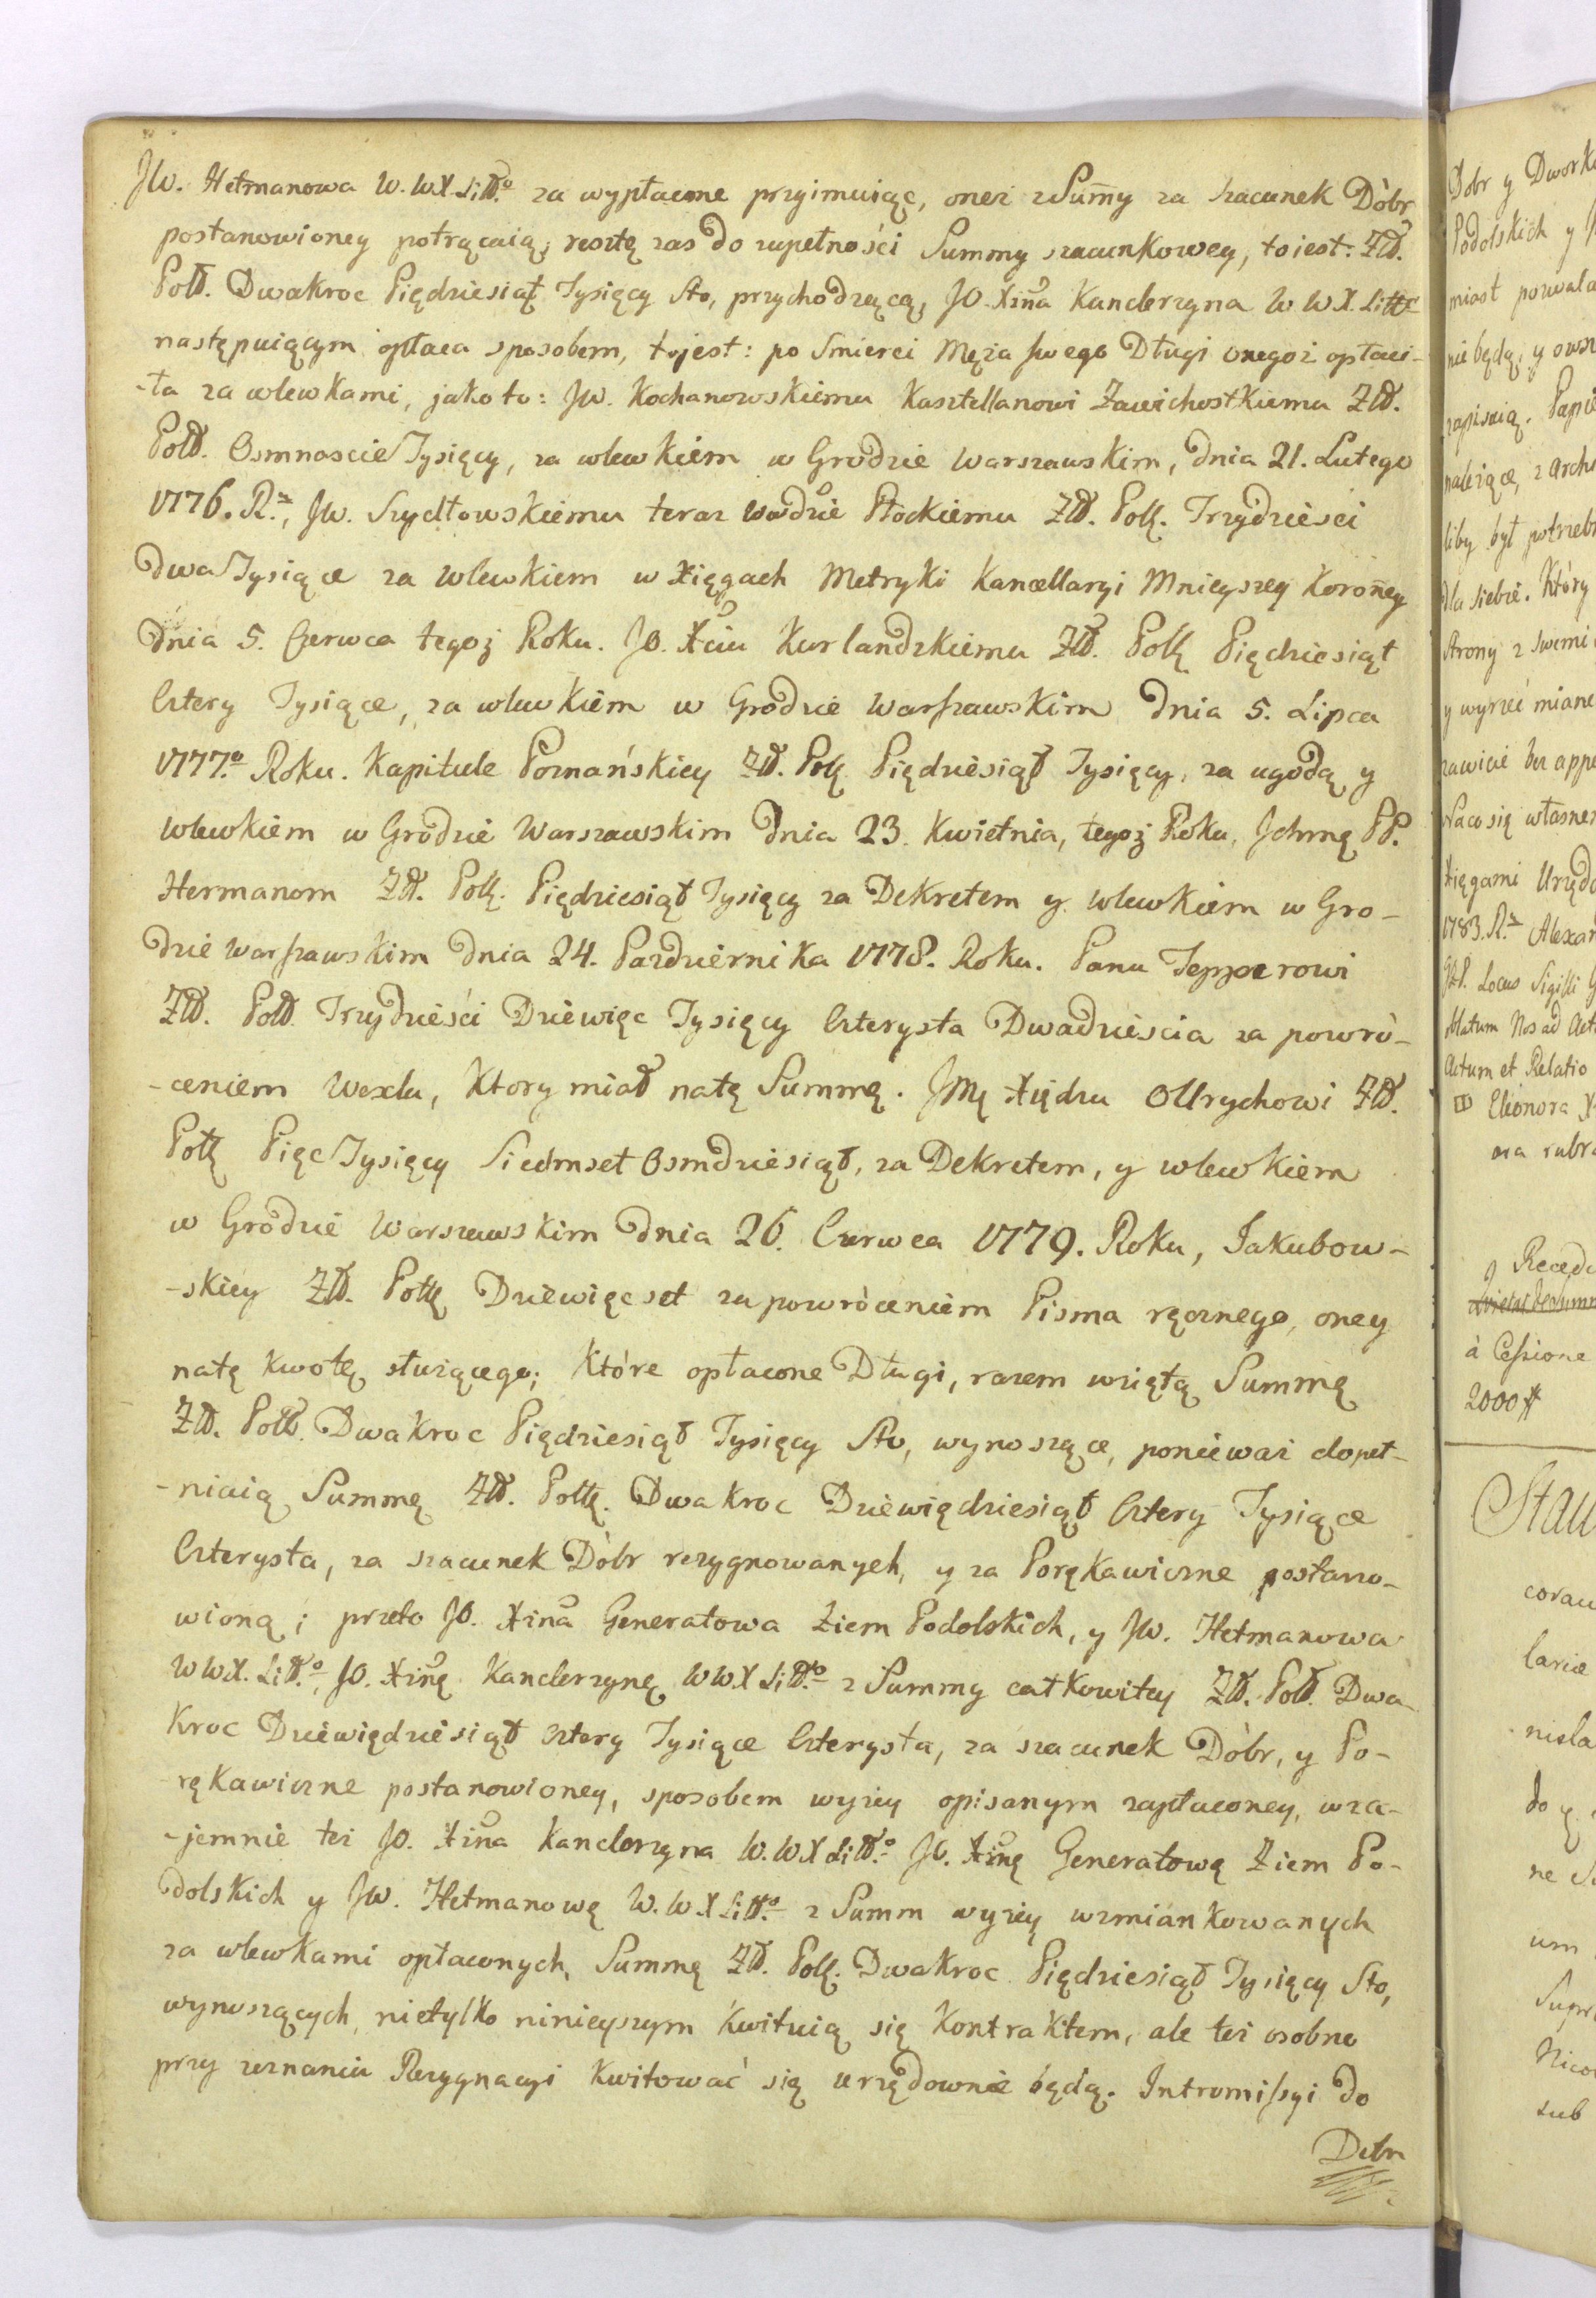 JW. Hetmanowa W. W.X. Litt.o za wypłacone przyimuiąc, oneż z Summy za szacunek Dòbr
postanowioney potrącaią, resztę zas do zupełności Summy szacunkowey, to iest: Złł.
Poll. Dwakroc Piędziesiąt Tysięcy Sto, przychodzącą, JO. Xżna Kanclerzyna W W X. Litto
następuiącym opłaca sposobem, tojest: po Smierci Męża swego Długi onegoż opłaci-
-ła za wlewkami, jako to: JW. Kochanowskiemu Kasztellanowi Zawichostkiemu Złł.
Poll. Osmnascie Tysięcy, za wlewkiem w Grodzie Warszawskim, Dnia 21. Lutego
1776. R., JW. Szydłowskiemu teraz Wodzie Płockiemu Złł. Poll. Trzydzieści
Dwa Tysiące za wlewkiem w Xięgach Metryki Kancellaryi Mnieyszey Koronney
Dnia 5. Czerwca tegoż Roku. JO. Xciu Kurlandzkiemu Złł. Poll Pięćdziesiąt
Cztery Tysiące, za wlewkiem w Grodzie Warszawskim Dnia 5. Lipca
1777.o Roku. Kapitule Poznańskiey Złł. Poll Piędziesiąt Tysięcy, za ugodą y
wlewkiem w Grodzie Warszawskim Dnia 23. Kwietnia, tegoż Roku, Jchmę PP.
Hermanom Złł. Poll. Pięćdziesiąt Tysięcy za Dekretem y wlewkiem w Gro-
dzie Warszawskim Dnia 24. Pazdziernika 1778. Roku. Panu Tepperowi
Złł. Poll. Trzydzieści Dziewięc Tysięcy Czterysta Dwadzieścia za powrò-
-ceniem Wexlu, Ktory miał natę Summę. JMę Xiędzu Ollrychowi Złł.
Poll Pięc Tysięcy Siedmset Osmdziesiąt, za Dekretem, y wlewkiem
w Grodzie Warszawskim Dnia 26. Czerwca 1779. Roku, Jakubow-
-skiey Złł. Poll Dziewięcset za powròceniem Pisma ręcznego, oney
natę kwotę, służącego; Ktòre opłacone Długi, razem wziętą Summę
Złł. Poll. Dwakroc Pięćdziesiąt Tysięcy Sto, wynoszące, poniewaz dopeł-
-niaią Summę Złł. Poll. Dwakroc Dziewiędziesiąt Cztery Tysiące
Czterysta, za szacunek Dòbr rezygnowanych, y za Porękawiczne postano-
wioną; przeto JO. Xżna Generałowa Ziem Podolskich, y JW. Hetmanowa
W W.X. Litt.o, JO. Xżnę Kanclerzynę W W.X Litt.o z Summy całkowitey Złł. Poll. Dwa
Kroc Dziewiędziesiąt cztery Tysiące Czterysta, za szacunek Dòbr, y Po-
rękawiczne postanowioney, sposobem wyżey opisanym zapłaconey, wza-
-jemnie też JO. Xżna Kanclerzyna W. W.X Litt.o JO. Xżnę Generałową Ziem Po-
dolskich y JW. Hetmanowę W. W.X Litt.o z Summ wyżey wzmiankowanych
za wlewkami opłaconych, Summę Złł. Poll. Dwakroc Pięćdziesiąt Tysięcy Sto,
wynoszących, nietylko ninieyszym Kwituią się Kontraktem, ale też osobno
przy zeznaniu Rezygnacyi kwitować się urzędownie będą. Intromissyi do
Dobr
Dobr y Dwork
Podolskich y
miast pozwala
nie będą, y
zapisuią. Papie
należące, z Arch
liby był potrzeb
dla siebie. Ktòry
Strony z swemi
y wyrzec miane
zawicie bez appe
Naco się własne
Xięgami Urzęd
1783. R. Alexa
Locus Sigilli
oblatum Nos ad Act
Actum et Relatio
Elionora
Reced
à Cessione
2000
Stau
coraw
lariæ
nisla
do
ne
um
Supr
Nico
sub